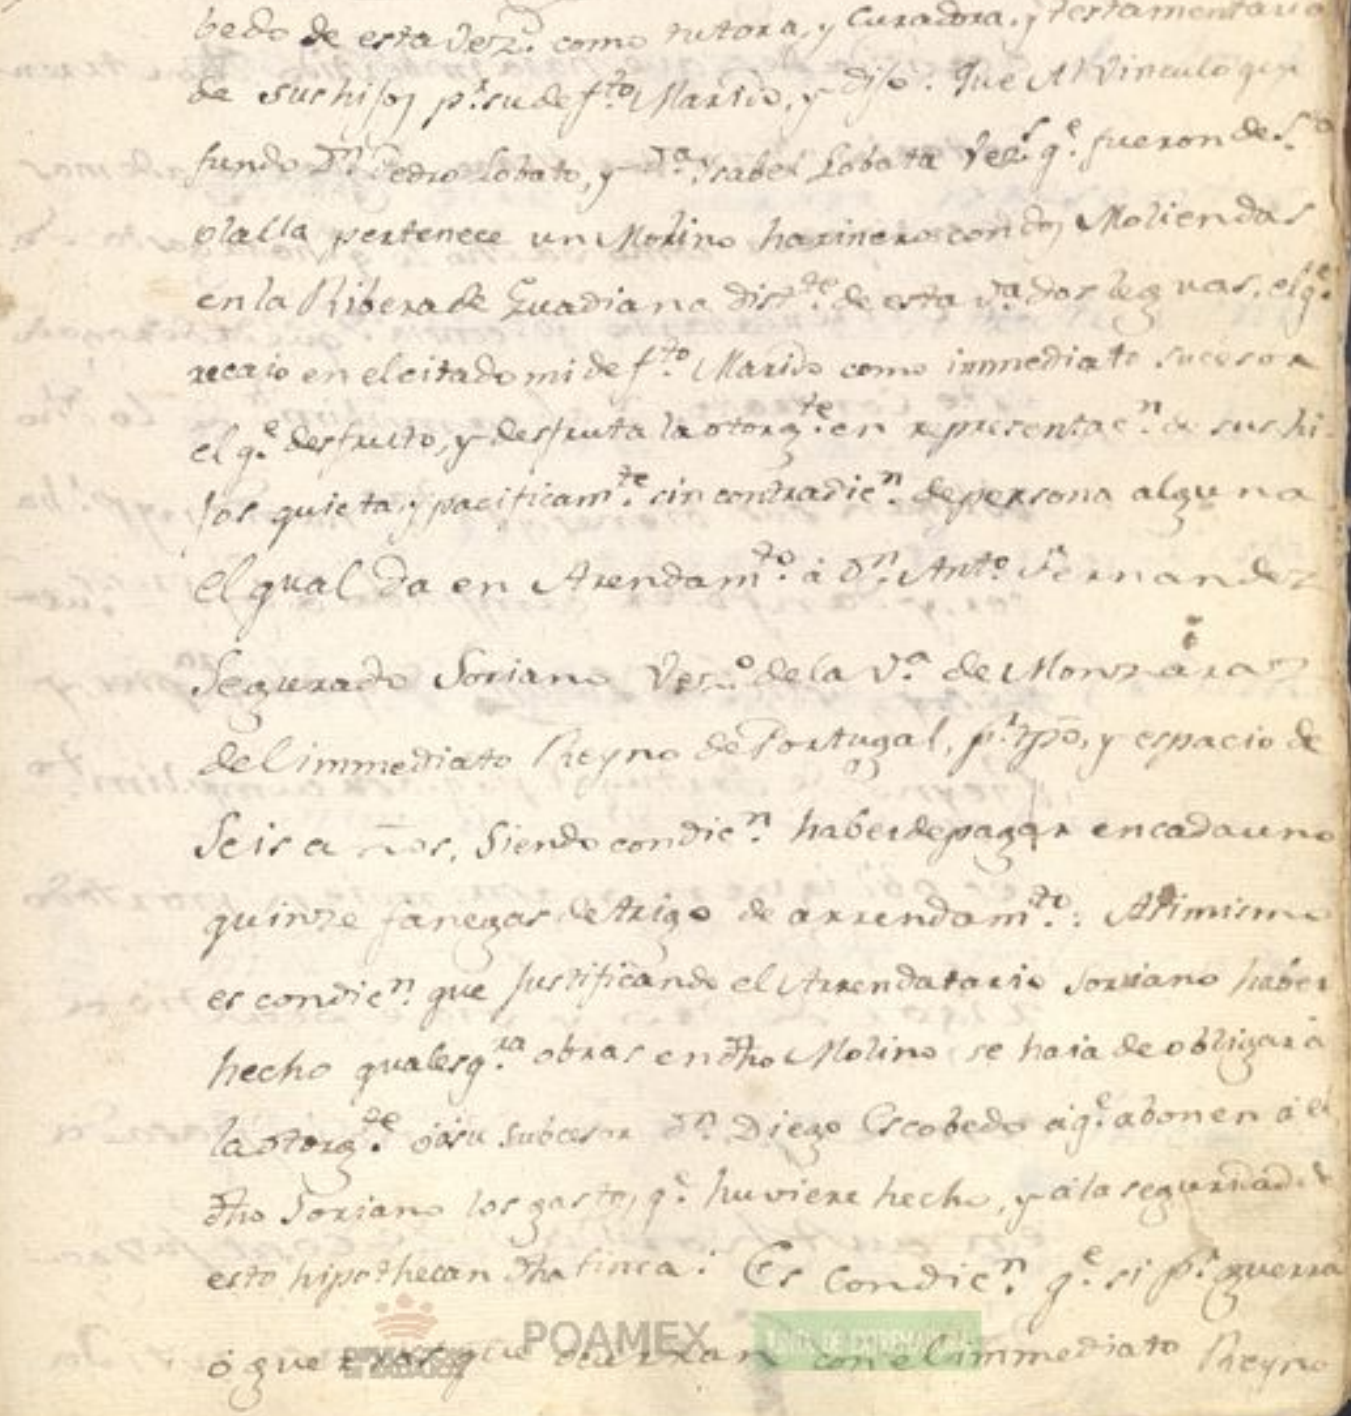 bedo de esta Vez.ª como tutora, y Curadora, y testamentaria
de sus hijos p.r su def.to Marido, y dijo: Que Al Vinculo que
fundo D.n Pedro Lobato, y D.ª Ysabel Lobata Vez.s q.e fueron de S.ta
olalla pertenece un Molino harinero con dos Moliendas
en la Ribera de Guadiana dist.te de esta V.ª dos leguas, el q.e
recaio en el citado mi def.to Marido como immediato sucesor
el q.e desfruto, y desfruta la otorg.te en representac.n de sus hi-
jos quieta, y pacificam.te sin contradic.n de persona alguna
el qual da en Arendam.to á D.n Ant.o Fernandez
Segurado Soriano Vez.o de la V.ª de Monzaraz
del immediato Reyno de Portugal, p.r tpõ, y espacio de
Seis años, Siendo condic.n haber de pagar en cada uno
quinze fanegas de trigo de arrendam.to: Asimismo
es condic.n que justificando el Arrendatario Soriano haber
hecho qualesq.ra obras en dho Molino se haia de obligar á
la otorg.te ó á su subcesor D.n Diego Escobedo á q.e abonen á el
dho Soriano los gastos q.e huviere hecho, y á la seguridad de
esto hipothecan dha finca: Es Condic.n q.e si p.r guerra
ó guerras que ocurran con el immediato Reyno
POAMEX
JUNTA DE EXTREMADURA